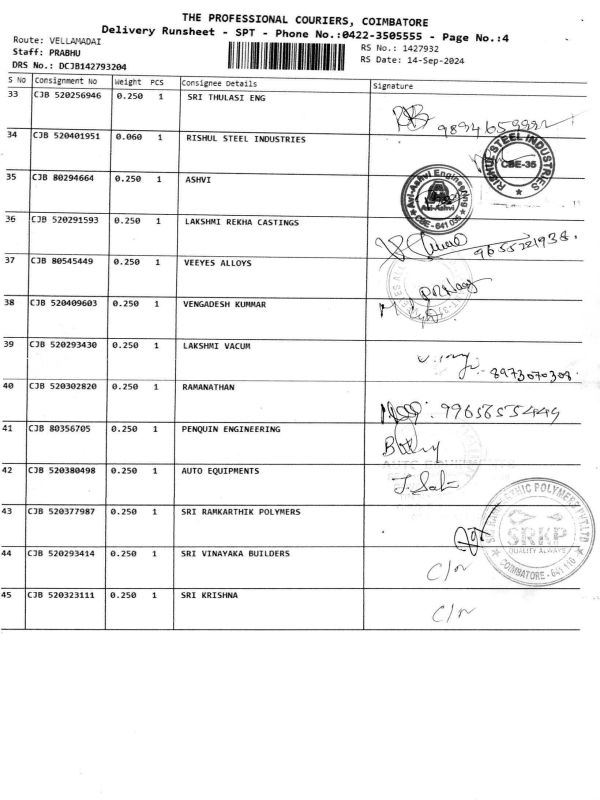 THE PROFESSIONAL COURIERS, COIMBATORE
Delivery Runsheet - SPT - Phone No.:0422-3505555 - Page No.:4
Route: VELLAMADAI
Staff: PRABHU
DRS No.: DCJB142793204
RS No.: 1427932
RS Date: 14-Sep-2024
S No Consignment No Weight PCS Consignee Details Signature
33 CJB 520256946 0.250 1 SRI THULASI ENG
34 CJB 520401951 0.060 1 RISHUL STEEL INDUSTRIES
RISHUL STEEL INDUSTRIES
CBE-35
35 CJB 80294664 0.250 1 ASHVI
Avi-Ashvi Engineering
CBE - 641 035
36 CJB 520291593 0.250 1 LAKSHMI REKHA CASTINGS
37 CJB 80545449 0.250 1 VEEYES ALLOYS
38 CJB 520409603 0.250 1 VENGADESH KUMMAR
39 CJB 520293430 0.250 1 LAKSHMI VACUM
8973070308
40 CJB 520302820 0.250 1 RAMANATHAN
41 CJB 80356705 0.250 1 PENQUIN ENGINEERING
42 CJB 520380498 0.250 1 AUTO EQUIPMENTS
43 CJB 520377987 0.250 1 SRI RAMKARTHIK POLYMERS
SRKP
QUALITY ALWAYS
COIMBATORE - 641 110
44 CJB 520293414 0.250 1 SRI VINAYAKA BUILDERS
45 CJB 520323111 0.250 1 SRI KRISHNA